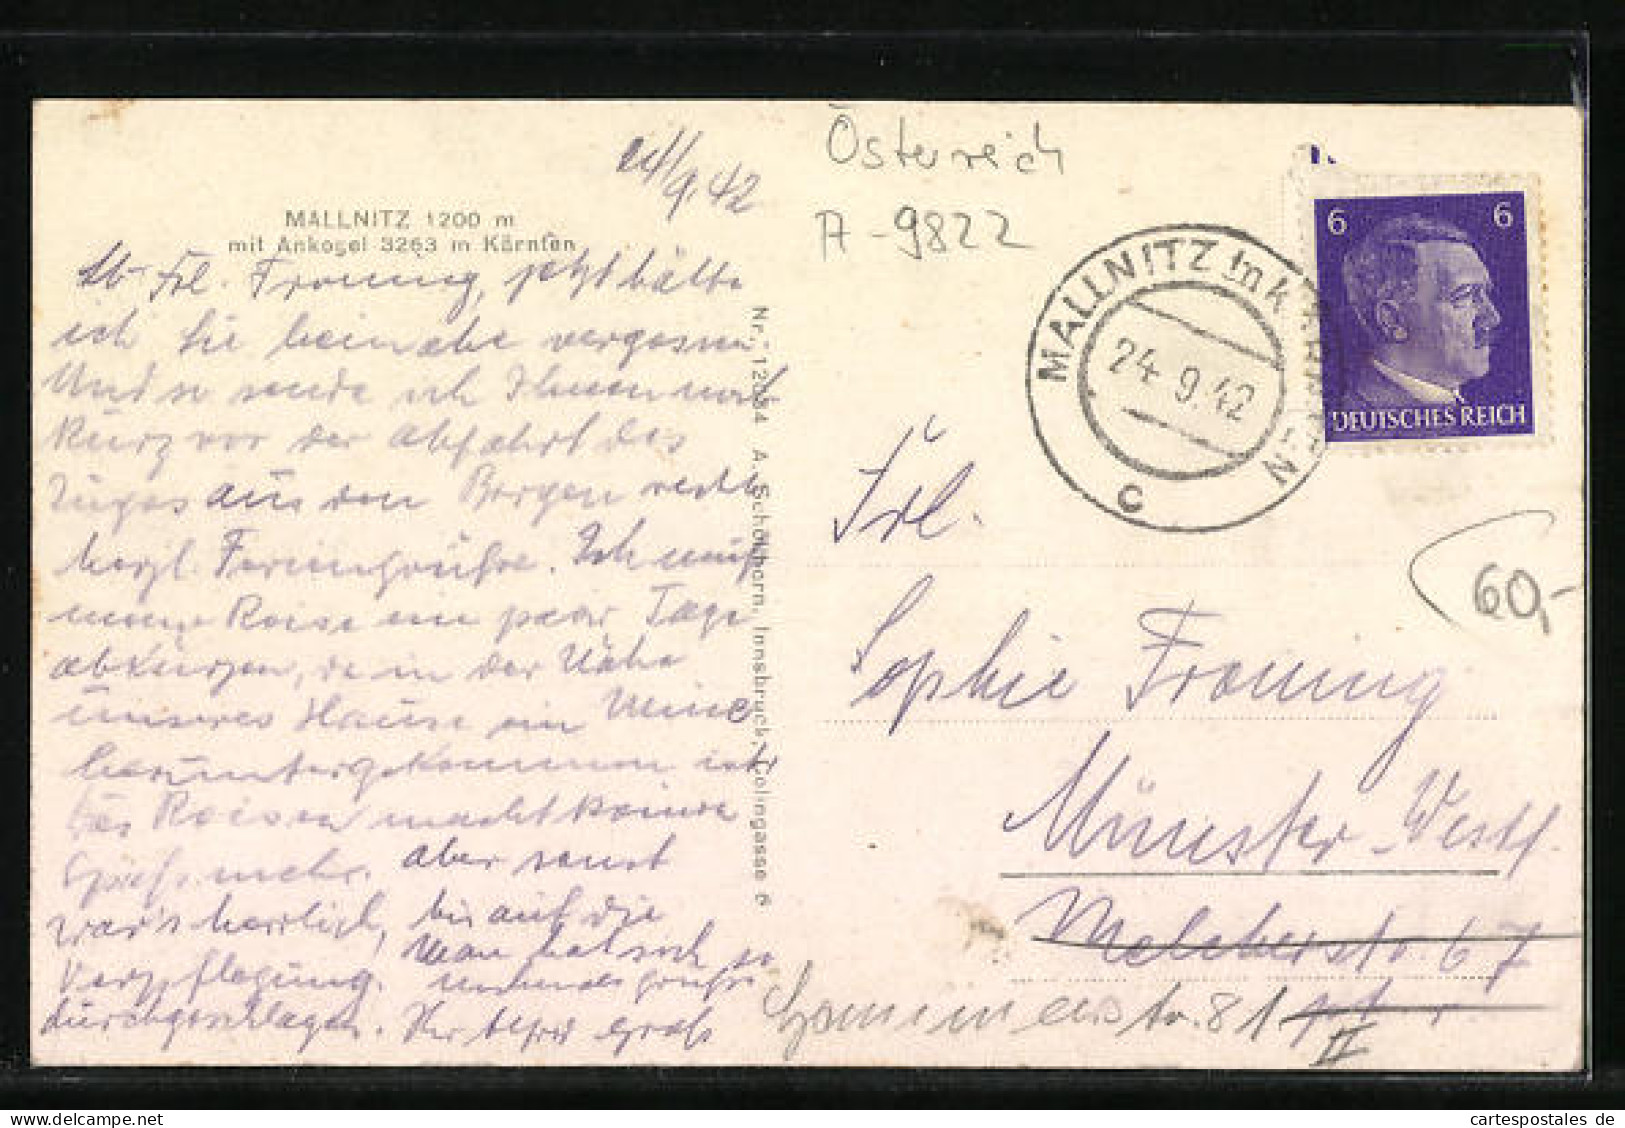 24/9.42
MALLNITZ 1200 m
mit Ankogel 3263 m Kärnten
Lb. Frl. Froning, jetzt hätte
ich Sie beinahe vergessen
Und so sende ich Ihnen noch
kurz vor der Abfahrt des
Zuges aus den Bergen recht
herzl. Feriengrüße. Ich muß
meine Reise ein paar Tage
abkürzen, da in der Nähe
unseres Hauses ein Mine
heruntergekommen ist.
Das Reisen macht keinen
Spaß mehr. aber sonst
war's herrlich, bis auf die
Verpflegung. Man hat sich so
durchgeschlagen.
Nr. 12084 A. Schöllhorn, Innsbruck, Colingasse 6
Österreich
A-9822
MALLNITZ in KÄRNTEN
24.9.42
C
6 6
DEUTSCHES REICH
60,-
Frl.
Sophie Froning
Münster Westf.
Melcherstr. 67
str. 81
II
cartespostales de